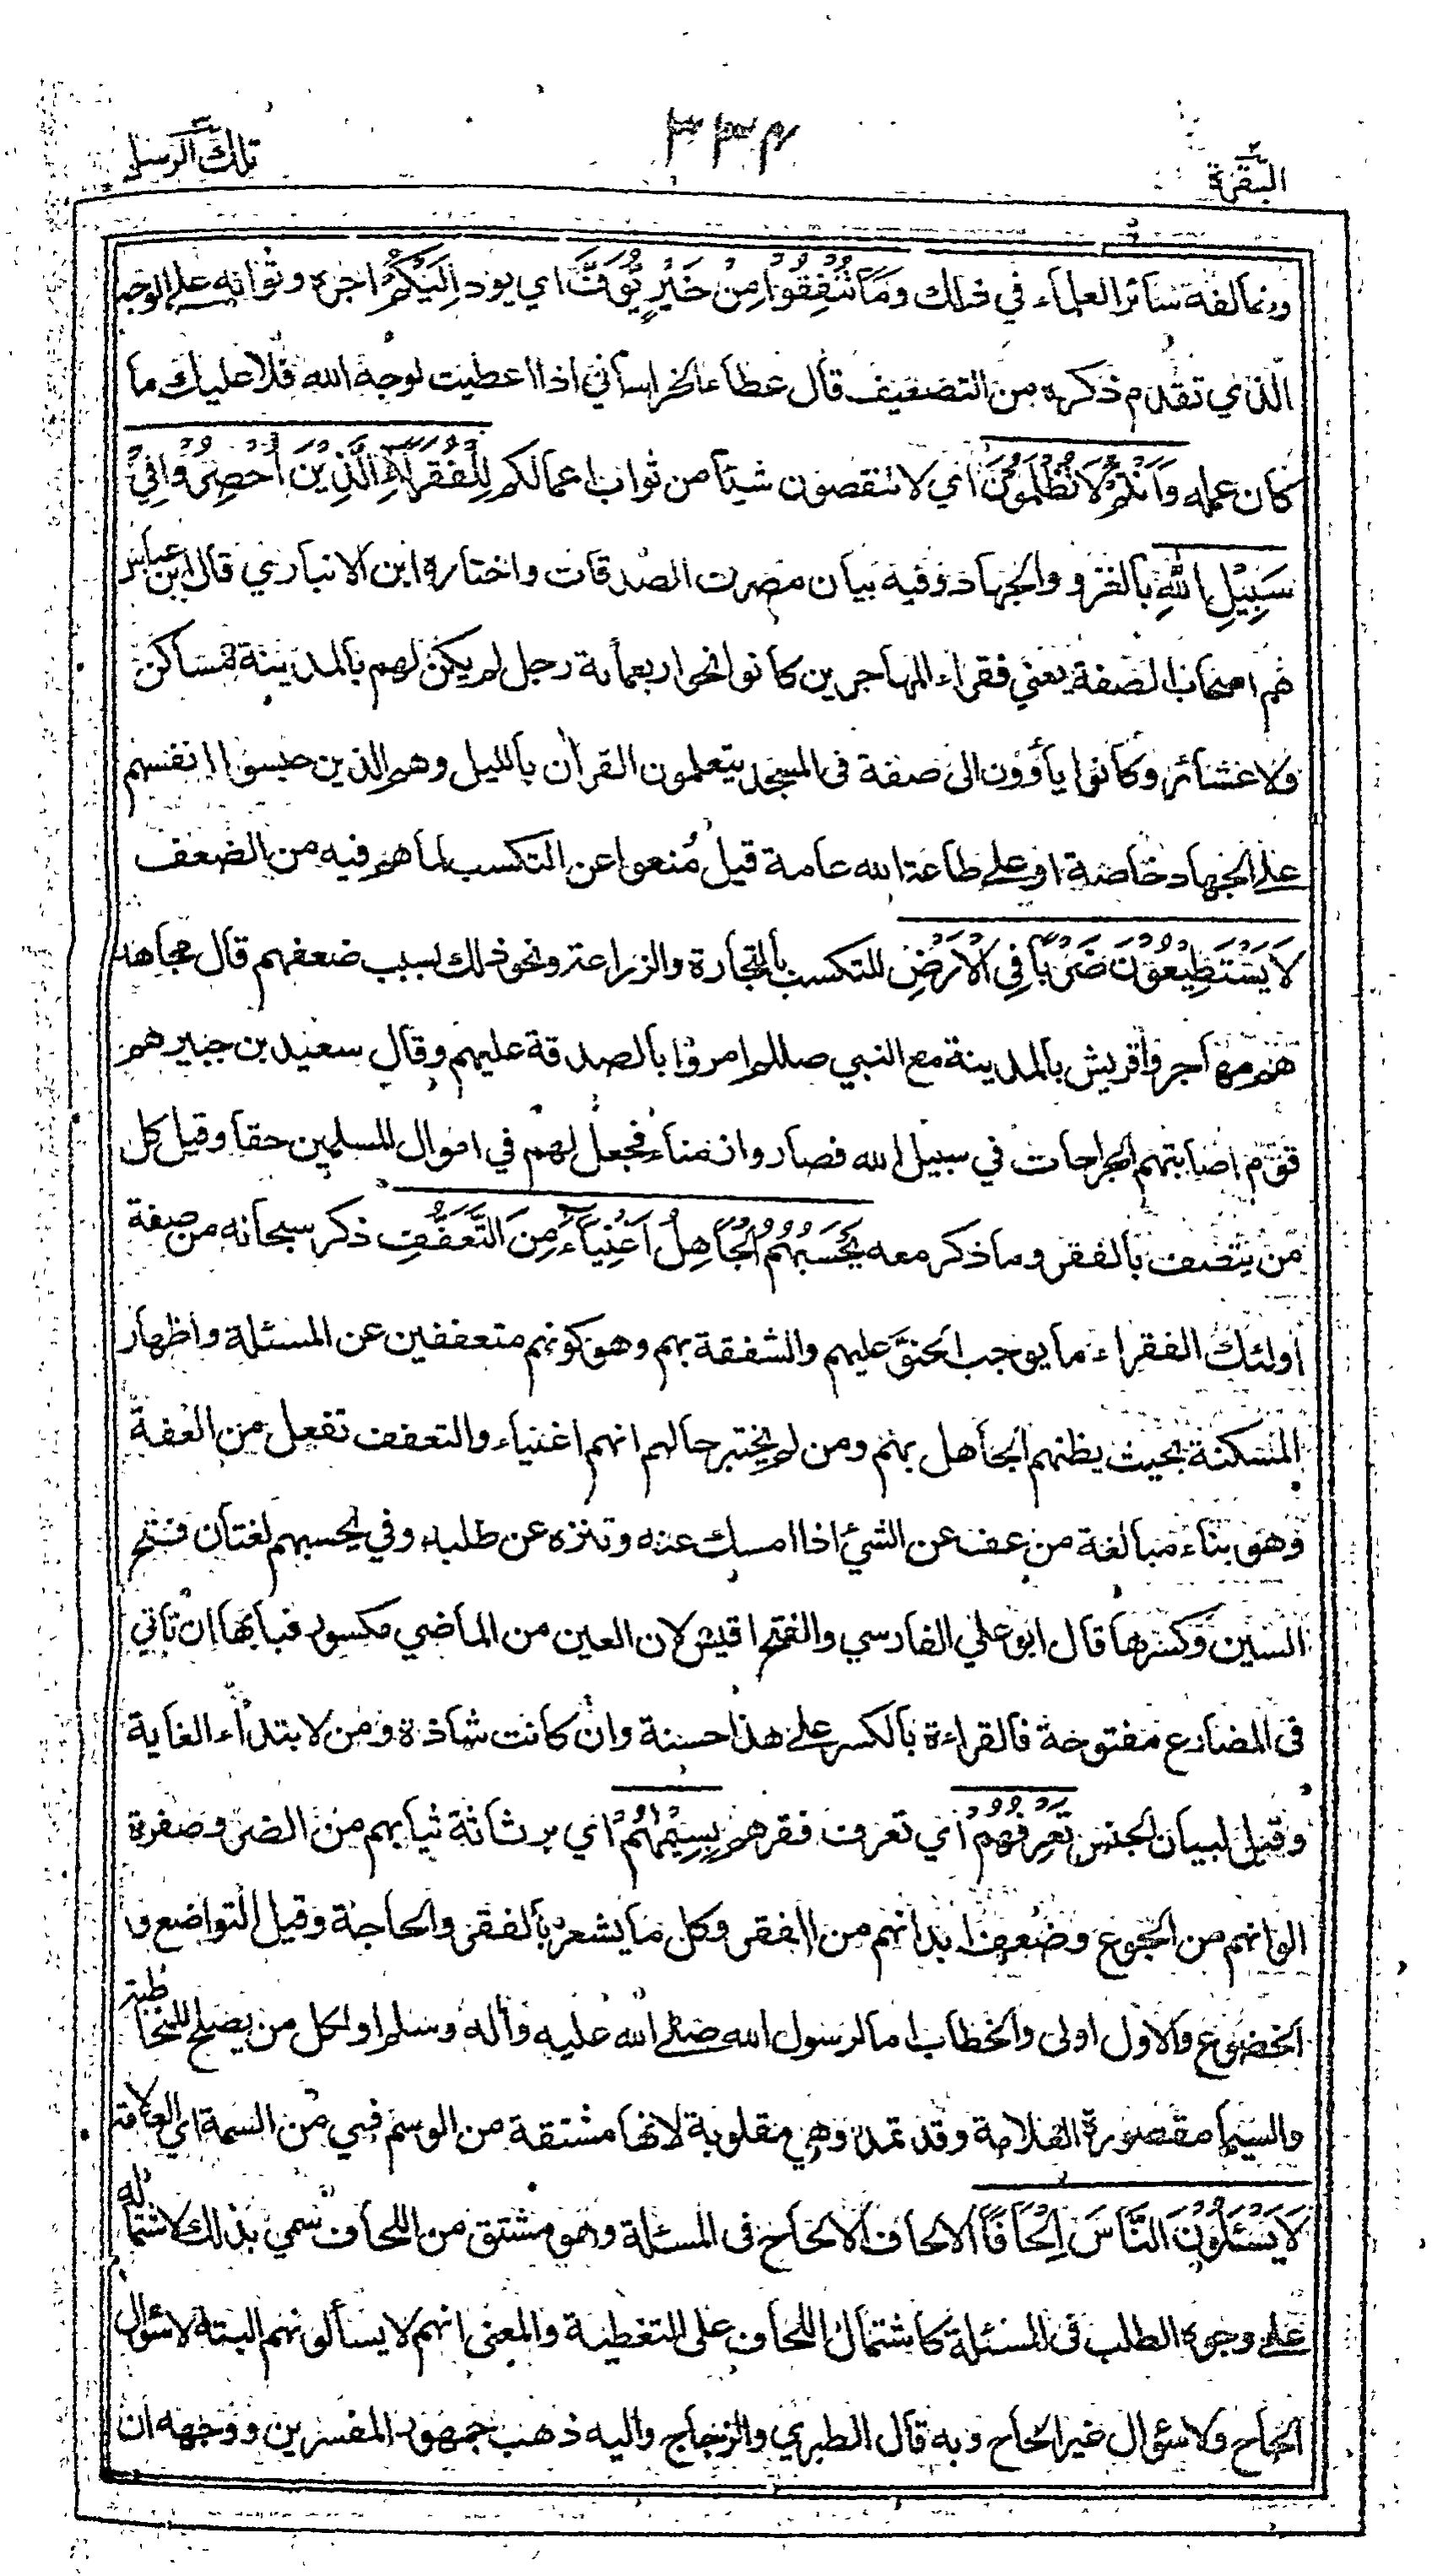 البقرة
٣٣٤
تلك الرسل
ومخالفة سائر العلماء في ذلك وَمَا تُنْفِقُوا مِنْ خَيْرٍ يُّوَفَّ اي يود اِلَيْكُمْ اجره وثوابه على الوجه
الذي تقدم ذكره من التضعيف قال عطاء الخراساني اذا اعطيت لوجه الله فلا عليك ما
كان عمله وَاَنْتُمْ لَا تُظْلَمُوْنَ اي لا تنقصون شيئا من ثواب اعمالكم لِلْفُقَرَآءِ الَّذِيْنَ اُحْصِرُوْا فِيْ
سَبِيْلِ اللهِ بالغزو والجهاد وفيه بيان مصرف الصدقات واختاره ابن الانباري قال ابن عباس
هم اصحاب الصفة يعني فقراء المهاجرين كانوا نحو اربعمائة رجل لم يكن لهم بالمدينة مساكن
ولا عشائر وكانوا يأوون الى صفة في المسجد يتعلمون القرأن بالليل وهم الذين حبسوا انفسهم
على الجهاد خاصة او على طاعة الله عامة قيل مُنعوا عن التكسب لما هم فيه من الضعف
لَا يَسْتَطِيْعُوْنَ ضَرْبًا فِي الْاَرْضِ للتكسب بالتجارة والزراعة ونحو ذلك بسبب ضعفهم قال مجاهد
هم مهاجروا قريش بالمدينة مع النبي صللم امروا بالصدقة عليهم وقال سعيد بن جبير هم
قوم اصابتهم الجراحات في سبيل الله فصاروا زمناء فجعل لهم في اموال المسلمين حقا وقيل كل
من يتصف بالفقر وما ذكر معه يَحْسَبُهُمُ الْجَاهِلُ اَغْنِيَآءَ مِنَ التَّعَفُّفِ ذكر سبحانه من صفة
اولئك الفقراء ما يوجب الحنو عليهم والشفقة بهم وهو كونهم متعففين عن المسئلة واظهار
المسكنة بحيث يظنهم الجاهل بهم ومن لم يختبر حالهم انهم اغنياء والتعفف تفعل من العفة
وهو بناء مبالغة من عف عن الشيء اذا امسك عنه وتنزه عن طلبه وفي يحسبهم لغتان فتح
السين وكسرها قال ابو علي الفارسي والفتح اقيس لان العين من الماضي مكسور فبابها ان تأتي
في المضارع مفتوحة فالقراءة بالكسر على هذا حسنة وان كانت شاذة ومن لابتداء الغاية
وقيل لبيان الجنس تَعْرِفُهُمْ اي تعرف فقرهم بِسِيْمٰهُمْ اي برثاثة ثيابهم من الضر وصفرة
الوانهم من الجوع وضُعف ابدانهم من الفقر وكل ما يشعر بالفقر والحاجة وقيل التواضع و
الخضوع والاول اولى والخطاب اما لرسول الله صلى الله عليه وأله وسلم او لكل من يصلح للمخاطبة
والسيما مقصورة العلامة وقد تمد وهي مقلوبة لانها مشتقة من الوسم فهي من السمة اي العلامة
لَا يَسْئَلُوْنَ النَّاسَ اِلْحَافًا الالحاف الالحاح في المسئلة وهو مشتق من اللحاف سمي بذلك لاشتماله
على وجوه الطلب في المسئلة كاشتمال اللحاف على التغطية والمعنى انهم لا يسألونهم البتة لا سؤال
الحاح ولا سؤال غير الحاح وبه قال الطبري والزجاج واليه ذهب جمهور المفسرين ووجهه ان